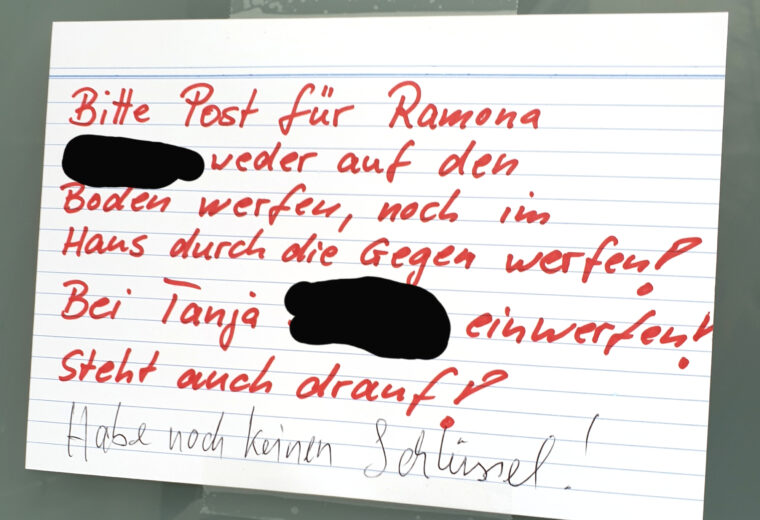 Bitte Post für Ramona
weder auf den
Boden werfen, noch im
Haus durch die Gegen werfen!
Bei Tanja einwerfen!
Steht auch drauf!
Habe noch keinen Schlüssel!